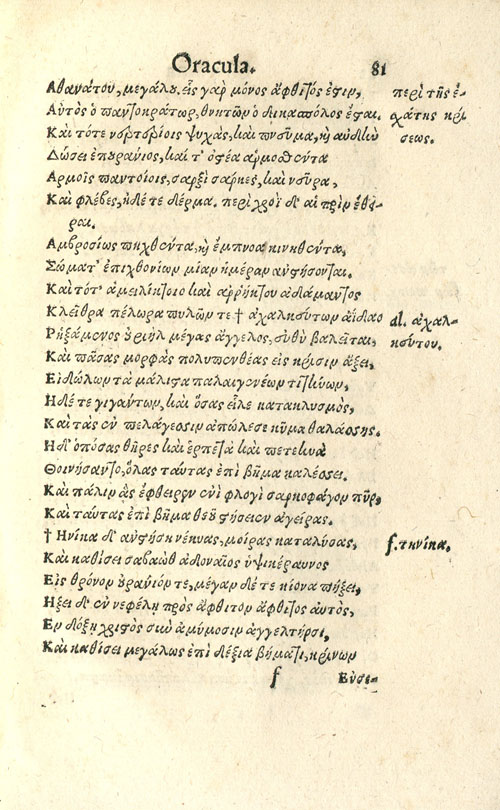 Oracula. 81
Ἀθανάτου, μεγάλου. εἷς γὰρ μόνος ἄφθιτός ἐστιν,
περὶ τῆς ἐ-
Αὐτὸς ὁ παντοκράτωρ, θνητῶν ὁ δικασπόλος ἔσται.
χάτης κρί
Καὶ τότε νερτερίοις ψυχὰς, καὶ πνεῦμα, καὶ αὐδὴν
σεως.
Δώσει ἐπουράνιος, καὶ τ' ὀστέα ἁρμοσθέντα
Ἁρμοῖς παντοίοις, σαρξὶ σάρκες, καὶ νεῦρα,
Καὶ φλέβες, ἠδέ τε δέρμα. περὶ χροῒ δ' αἱ πρὶν ἔθει-
ραι.
Ἀμβροσίως πηχθέντα, καὶ ἔμπνοα κινηθέντα,
Σώματ' ἐπιχθονίων μίαν ἡμέραν ἀνστήσονται.
Καὶ τότ' ἀμειλίκτοιο καὶ ἀρρήκτου ἀδάμαντος
Κλεῖθρα πέλωρα πυλῶν τε † ἀχαλκεύτων ἀΐδαο
al. ἀχαλ-
Ῥηξάμενος οὐριὴλ μέγας ἄγγελος, εὐθὺ βαλεῖται,
κεύτου.
Καὶ πάσας μορφὰς πολυπενθέας εἰς κρίσιν ἄξει,
Εἰδώλων τὰ μάλιστα παλαιγενέων τιτήνων,
Ἠδέ τε γιγάντων, καὶ ὅσας εἷλε κατακλυσμὸς,
Καὶ τὰς ἐν πελάγεσιν ἀπώλεσε κῦμα θαλάσσης.
Ἠδ' ὁπόσας θῆρες καὶ ἑρπετὰ καὶ πετεινὰ
Θοινήσαντο, ὅλας ταύτας ἐπὶ βῆμα καλέσσει.
Καὶ πάλιν ἃς ἔφθειρεν ἐνὶ φλογὶ σαρκοφάγον πῦρ,
Καὶ ταύτας ἐπὶ βῆμα θεοῦ στήσειεν ἀγείρας.
† Ἡνίκα δ' ἀνστήσῃ νέκυας, μοίρας καταλύσας,
f. τηνίκα.
Καὶ καθίσει σαβαὼθ ἀδοναῖος ὑψικέραυνος
Εἰς θρόνον οὐράνιόν τε, μέγαν δέ τε κίονα πήξει,
Ἥξει δ' ἐν νεφέλῃ πρὸς ἄφθιτον ἄφθιτος αὐτὸς,
Ἐν δόξῃ χριστὸς σὺν ἀμύμοσιν ἀγγελτῆρσι,
Καὶ καθίσει μεγάλως ἐπὶ δεξιὰ βήματι, κρίνων
f Εὐσε-